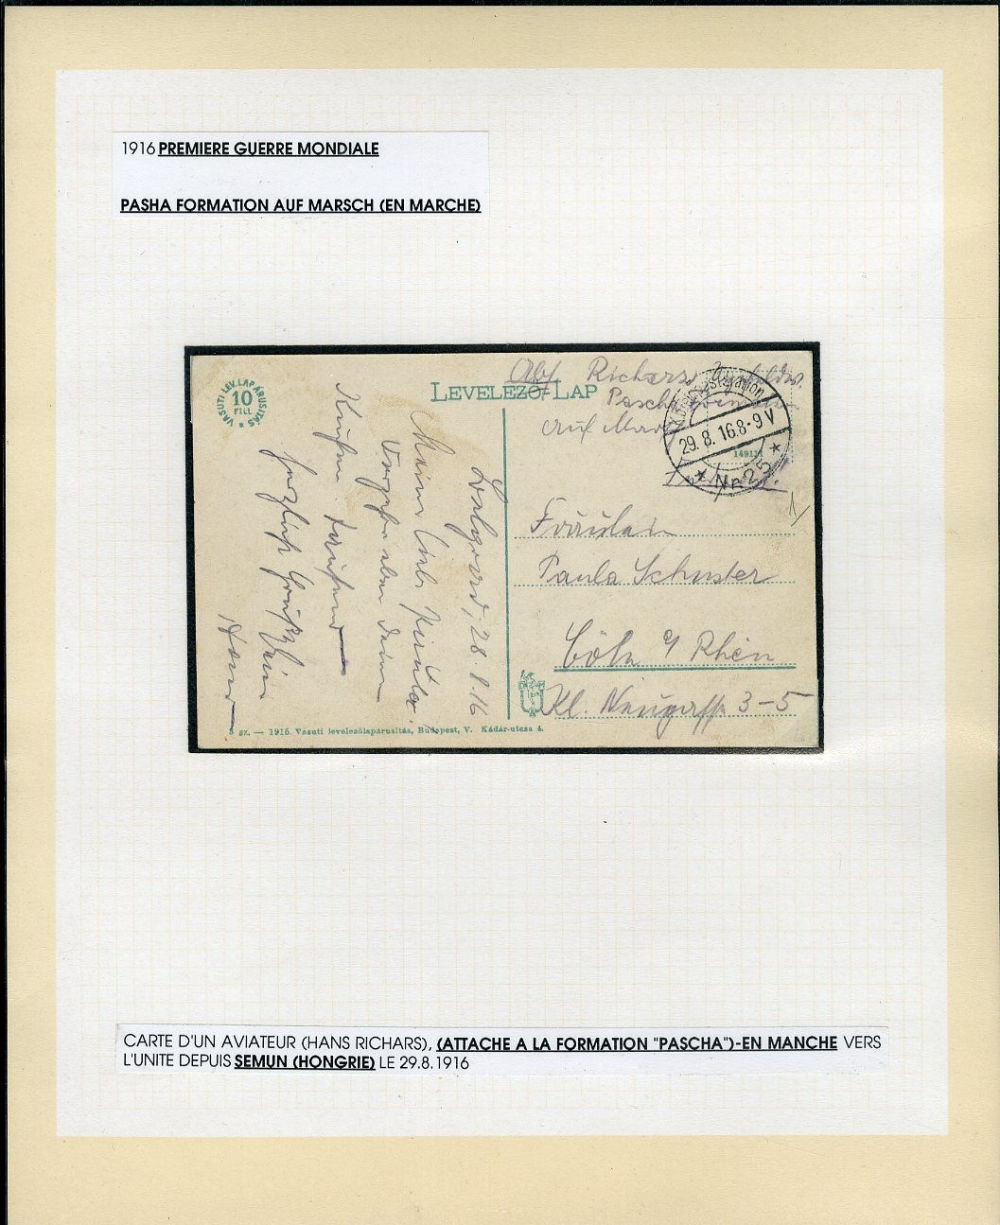 1916 PREMIERE GUERRE MONDIALE
PASHA FORMATION AUF MARSCH (EN MARCHE)
VASUTI LEV. LAP ÁRUSITÁS
10
FILL
LEVELEZŐ-LAP
Abs Richars
Pascha
auf Marsch
Poststation
29. 8. 16. 8-9 V
* Nr. 25 *
149121
Fräulein
Paula Schuster
Cöln a/ Rhein
Kl. Neugasse 3-5
Belgrad, 28. 8. 16
Meine liebe Paula
aber
tausend
herzlich Grüße Dein
Hans
SZ. — 1915. Vasuti levelezőlapárusitás, Budapest, V. Kádár-utcza 4.
CARTE D'UN AVIATEUR (HANS RICHARS), (ATTACHE A LA FORMATION "PASCHA")-EN MANCHE VERS
L'UNITE DEPUIS SEMUN (HONGRIE) LE 29.8.1916